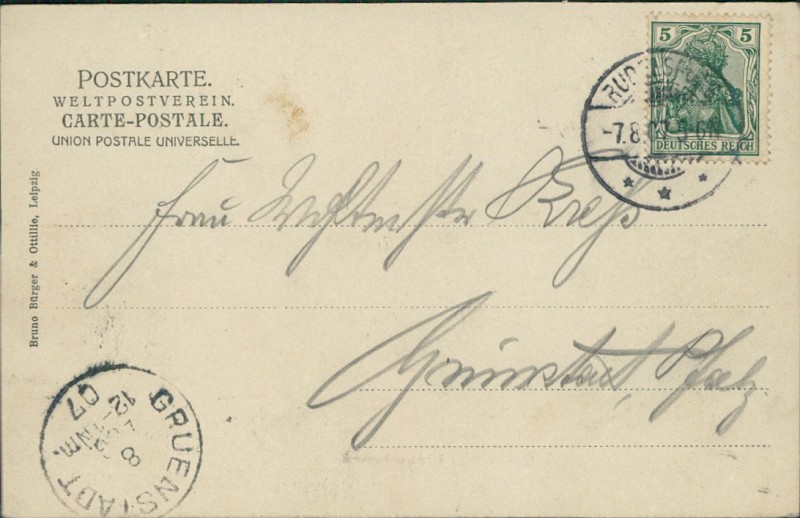 POSTKARTE.
WELTPOSTVEREIN.
CARTE-POSTALE.
UNION POSTALE UNIVERSELLE.
5 5
DEUTSCHES REICH
-7.8.07
Frau Kreß
Grünstadt, Pfalz
Bruno Bürger & Ottillie, Leipzig
GRUENSTADT
07
12-1
Nm.
8